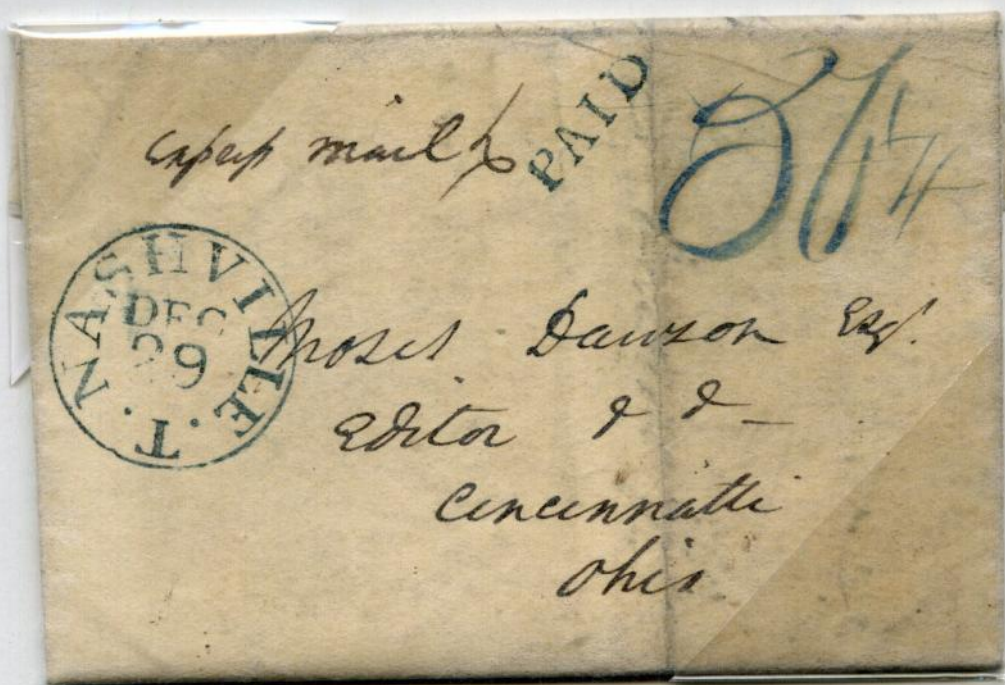 express mail
PAID
56 1/4
NASHVILLE. T.
DEC
29
Moses Dawson Esqr.
Editor & & —
Cincinnatti
Ohio